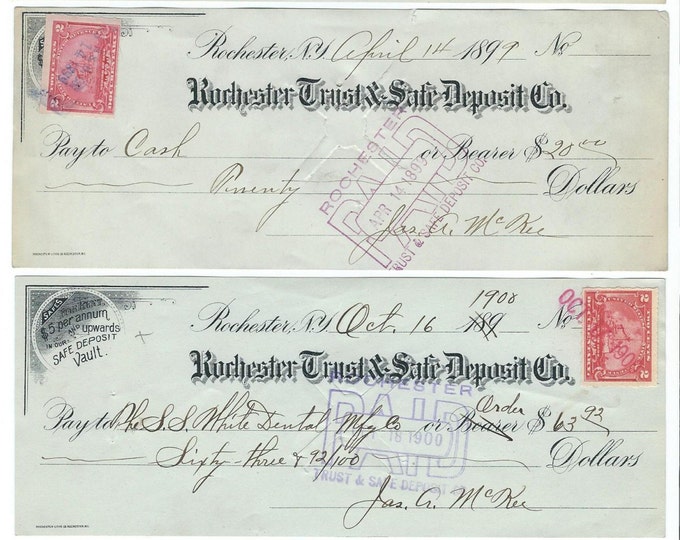 Rochester, N.Y. April 14 1899 No.
Rochester Trust & Safe Deposit Co.
Pay to Cash or Bearer $ 20 00
Twenty Dollars
Jas. A. McKee
ROCHESTER
PAID
APR 14 1899
TRUST & SAFE DEPOSIT CO.
2 2
$5 per annum
AND upwards
IN OUR
SAFE DEPOSIT
Vault.
1900
Rochester, N.Y. Oct. 16 189 No.
Rochester Trust & Safe Deposit Co.
Order
Pay to The S. S. White Dental Mfg Co or Bearer $ 63 92
Sixty-three & 92/100 Dollars
Jas. A. McKee
ROCHESTER
PAID
18 1900
TRUST & SAFE DEPOSIT CO.
OCT
2 2